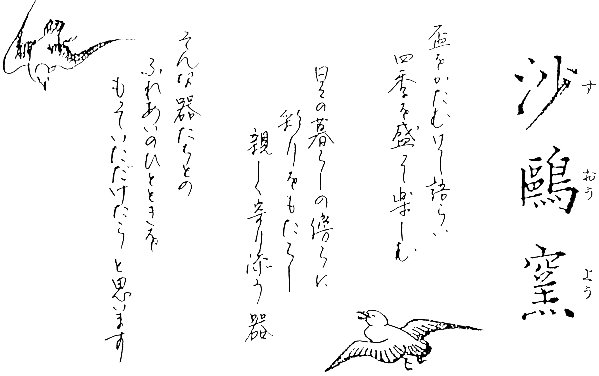 沙鷗窯
す おう よう
盃をかたむけ語らい
四季を盛り楽しむ
日々の暮らしの傍らに
彩りをもたらし
親しく寄り添う器
そんな器たちとの
ふれあいのひとときを
もっていただけたら と思います